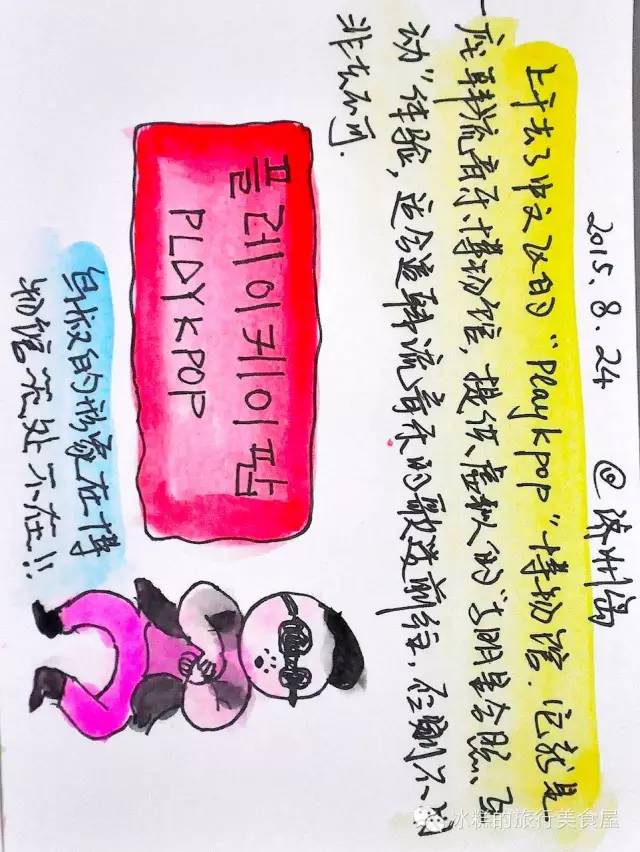 2015.8.24 @济州岛
上午去了中文区的“Playkpop”博物馆. 它就是
一座韩流音乐博物馆, 提供虚拟的“与明星合照、互
动”体验, 适合追韩流音乐的歌迷前往, 否则不
非去不可.
플레이케이팝
PLAYKPOP
鸟叔的形象在博
物馆无处不在!!
冰糕的旅行美食屋